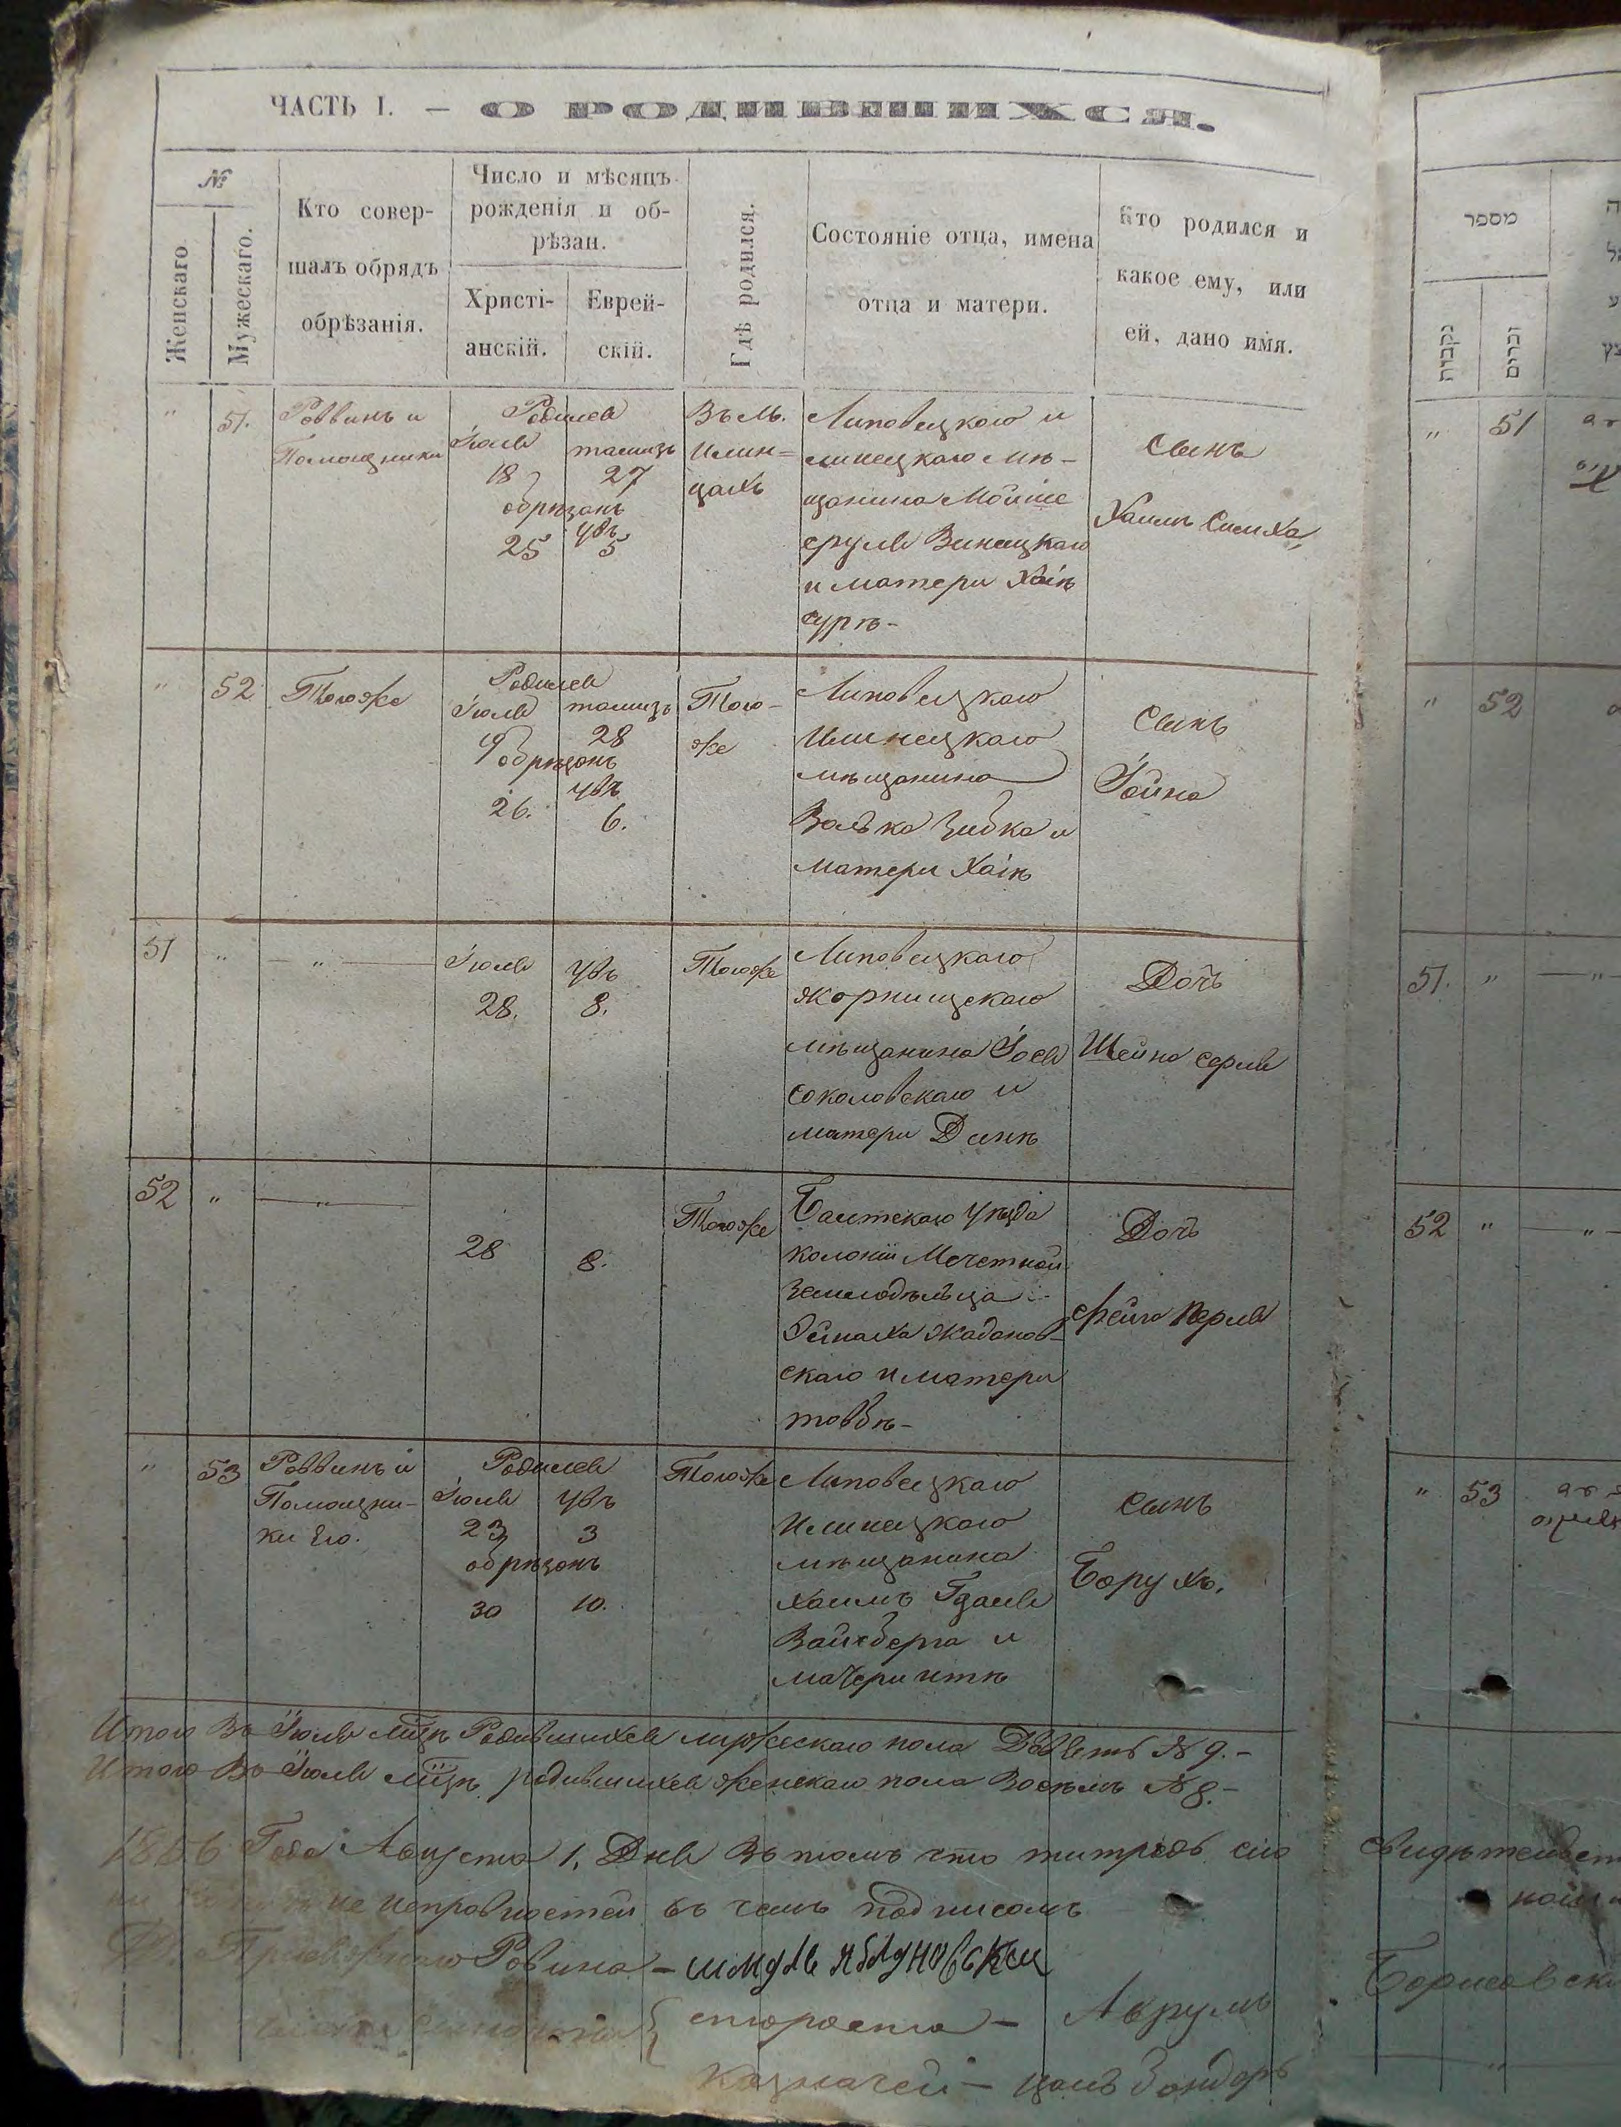 ЧАСТЬ I. — О РОДИВШИХСЯ.
№
Женскаго
Мужескаго.
Кто совер-
шалъ обрядъ
обрѣзанія.
Число и мѣсяцъ
рожденія и об-
рѣзан.
Христі-
анскій.
Еврей-
скій.
Гдѣ родился.
Состояніе отца, имена
отца и матери.
Кто родился и
какое ему, или
ей, дано имя.
"
51.
Раввинъ и
Помощники
Родился
Іюля
18
тамизъ
27
обрѣзанъ
25
увъ
5
Въ м.
Илин=
цахъ
Липовецкаго и
линецкаго мѣ-
щанина Мойше
сруля Виницкаго
и матери Хаіѣ
сурѣ-
Сынъ
Хаимъ Симха
"
52
Тогоже
Родился
Іюля
19
тамизъ
28
обрѣзанъ
26.
увъ
6.
Того-
же
Липовецкаго
Илинецкаго
мѣщанина
Волька Зибка и
матери Хаіѣ
Сынъ
Іойна
51
"
— " —
Іюля
28.
увъ
8.
Тогоже
Липовецкаго
жорнищскаго
мѣщанина Іося
соколовскаго и
матери Динѣ
Дочь
Шейна серля
52
"
— " —
28
8.
Тогоже
Балтскаго уѣзда
колоніи Мечетной
земледѣльца
жаданов-
скаго и матери
товбѣ-
Дочь
Фейга Перля
"
53
Раввинъ и
Помощни-
ки Его.
Родился
Іюля
23
увъ
3
обрѣзанъ
30
10.
Тогоже
Липовецкаго
Илинецкаго
мѣщанина
Хаимъ Гдаля
Вайсберга и
матери итѣ
Сынъ
Борухъ.
Итого Въ Іюлѣ мцѣ Родившихся мужескаго пола Девять № 9.-
Итого Въ Іюлѣ мцѣ родившихся женскаго пола Восѣмъ № 8.-
1856 Года Августа 1, Дня Въ томъ что тетрадь сію
не исправностей въ чемъ подписомъ
Раввина — шмуль яблуновскій
староста — Аврумъ
Казначей — Бондарь
מספר
נקבות
זכרים
"
51
"
52
51.
"
— " —
52
"
— " —
"
53